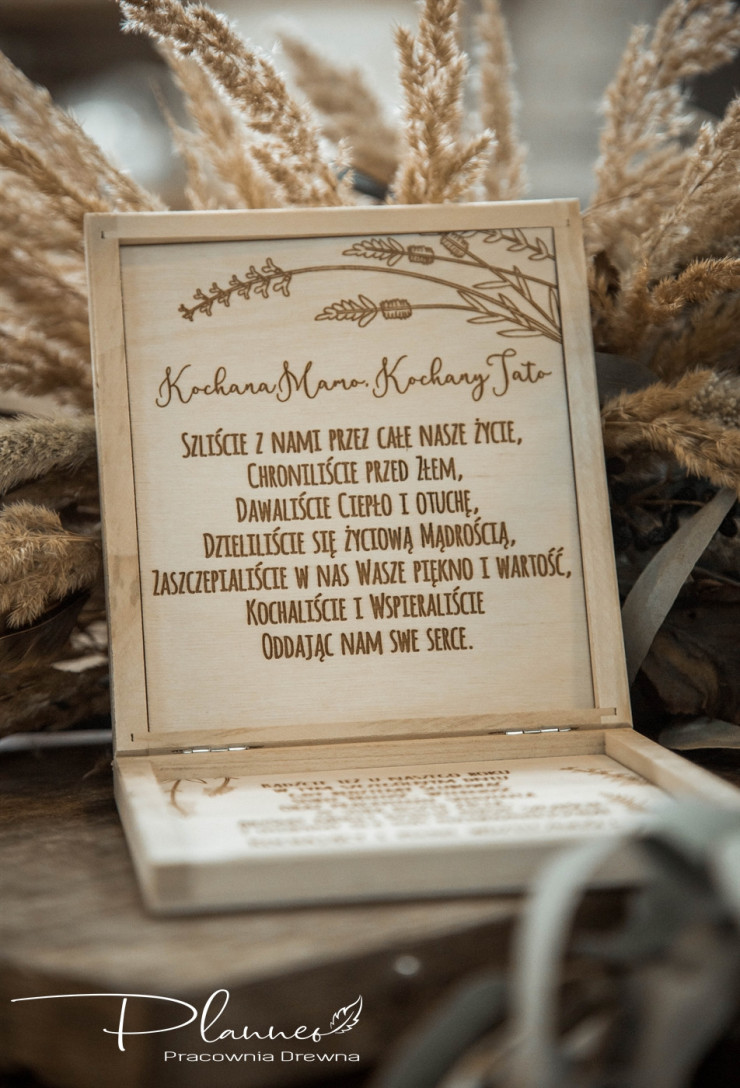 Kochana Mamo, Kochany Tato
Szliście z nami przez całe nasze życie,
Chroniliście przed Złem,
Dawaliście Ciepło i otuchę,
Dzieliliście się życiową Mądrością,
Zaszczepialiście w nas Wasze piękno i wartość,
Kochaliście i Wspieraliście
Oddając nam swe serce.
Bądźcie też u naszego boku
Planneo
Pracownia Drewna